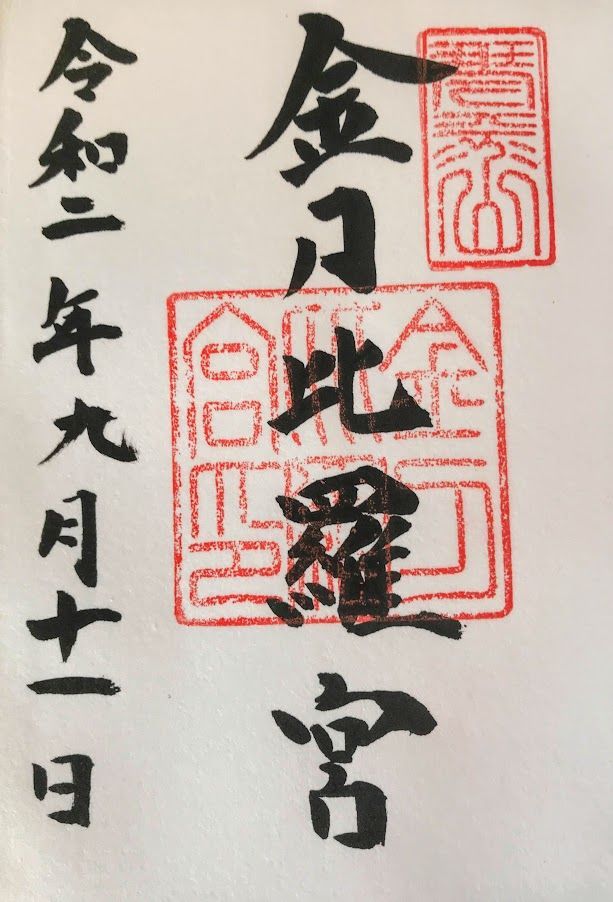 金刀比羅宮
金刀
比羅
宮印
令和二年九月十一日